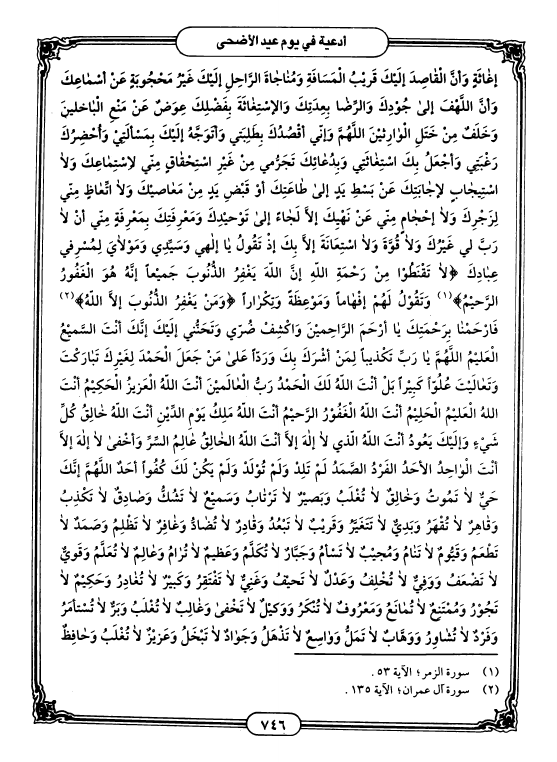 أدعية في يوم عيد الأضحى
إغاثَةٍ وَأَنَّ الْقاصِدَ إِلَيْكَ قَرِيْبُ الْمَسافَةِ وَمُناجاةَ الرَّاحِلِ إِلَيْكَ غَيْرُ مَحْجُوبَةٍ عَنْ أسْماعِكَ
وَأَنَّ اللَّهْفَ إلىٰ جُوْدِكَ وَالرِّضا بِعِدَتِكَ وَالإسْتِغاثَةَ بِفَضْلِكَ عِوَضٌ عَنْ مَنْعِ الْباخِلينَ
وَخَلَفٌ مِنْ خَتَلِ الْوارِثِيْنَ اللَّهُمَّ وَإِنّي أَقْصُدُكَ بِطَلِبَتي وَأَتَوَجَّهُ إِلَيْكَ بِمَسْأَلَتِيْ وَأُحْضِرُكَ
رَغْبَتِي وَأَجْعَلُ بِكَ اسْتِغاثَتي وَبِدُعائِكَ تَحَرُّمي مِنْ غَيْرِ اسْتِحْقاقٍ مِنّي لِاسْتِماعِكَ وَلاٰ
اسْتيجابٍ لِإجابَتِكَ عَنْ بَسْطِ يَدٍ إلىٰ طاعَتِكَ أَوْ قَبْضِ يَدٍ مِنْ مَعاصيْكَ وَلاٰ اتِّعاظٍ مِنّي
لِزَجْرِكَ وَلاٰ إحْجامٍ مِنّي عَنْ نَهْيِكَ إلاَّ لَجَاءً إلىٰ تَوْحيْدِكَ وَمَعْرِفَتِكَ بِمَعْرِفَةٍ مِنّي أَنْ لاٰ
رَبَّ لي غَيْرُكَ وَلاٰ قُوَّةَ وَلاٰ اسْتِعانَةَ إلاَّ بِكَ إذْ تَقُولُ يٰا إلٰهي وَسَيِّدي وَمَوْلايَ لِمُسْرِفي
عِبادِكَ ﴿لاٰ تَقْنَطُوا مِنْ رَحْمَةِ اللَّهِ إنَّ اللَّهَ يَغْفِرُ الذُّنُوبَ جَميعاً إنَّهُ هُوَ الْغَفُورُ
الرَّحيْمُ﴾(١) وَتَقُولُ لَهُمْ إفْهاماً وَمَوْعِظَةً وَتِكْراراً ﴿وَمَنْ يَغْفِرُ الذُّنُوبَ إلاَّ اللَّهُ﴾(٢)
فَارْحَمْنا بِرَحْمَتِكَ يٰا أَرْحَمَ الرَّاحِميْنَ وَاكْشِفْ ضُرّي وَتَحَنُّني إِلَيْكَ إنَّكَ أَنْتَ السَّميْعُ
الْعَليْمُ اللَّهُمَّ يٰا رَبِّ تَكْذيباً لِمَنْ أَشْرَكَ بِكَ وَرَدّاً عَلىٰ مَنْ جَعَلَ الْحَمْدَ لِغَيْرِكَ تَبارَكْتَ
وَتَعالَيْتَ عُلُوّاً كَبيْراً بَلْ أَنْتَ اللَّهُ لَكَ الْحَمْدُ رَبُّ الْعالَميْنَ أَنْتَ اللَّهُ الْعَزيزُ الْحَكيْمُ أَنْتَ
اللهُ الْعَليْمُ الْحَليْمُ أَنْتَ اللَّهُ الْغَفُورُ الرَّحيْمُ أَنْتَ اللَّهُ مَلِكُ يَوْمِ الدِّيْنِ أَنْتَ اللَّهُ خالِقُ كُلِّ
شَيْءٍ وَإِلَيْكَ يَعُودُ أَنْتَ اللَّهُ الَّذي لاٰ إلٰهَ إلاَّ أَنْتَ اللَّهُ الْخالِقُ عالِمُ السِّرِّ وَأَخْفىٰ لاٰ إلٰهَ إلاَّ
أَنْتَ الْواحِدُ الأحَدُ الْفَرْدُ الصَّمَدُ لَمْ تَلِدْ وَلَمْ تُوْلَدْ وَلَمْ يَكُنْ لَكَ كُفُواً أَحَدٌ اللَّهُمَّ إنَّكَ
حَيٌّ لاٰ تَمُوتُ وَخالِقٌ لاٰ تُغْلَبُ وَبَصيْرٌ لاٰ تَرْتابُ وَسَميْعٌ لاٰ تَشُكُّ وَصادِقٌ لاٰ تَكْذِبُ
وَقاهِرٌ لاٰ تُقْهَرُ وَبَدِيٌّ لاٰ تَتَغَيَّرُ وَقَريْبٌ لاٰ تَبْعُدُ وَقادِرٌ لاٰ تُضادُّ وَغافِرٌ لاٰ تَظْلِمُ وَصَمَدٌ لاٰ
تَطْعَمُ وَقَيُّومٌ لاٰ تَنامُ وَمُجيْبٌ لاٰ تَسْأَمُ وَجَبّارٌ لاٰ تُكَلَّمُ وَعَظيْمٌ لاٰ تُرامُ وَعالِمٌ لاٰ تُعَلَّمُ وَقَويٌّ
لاٰ تَضْعَفُ وَوَفِيٌّ لاٰ تُخْلِفُ وَعَدْلٌ لاٰ تَحيْفُ وَغَنِيٌّ لاٰ تَفْتَقِرُ وَكَبيْرٌ لاٰ تُغادِرُ وَحَكيْمٌ لاٰ
تَجُوْرُ وَمُمْتَنِعٌ لاٰ تُمانَعُ وَمَعْرُوفٌ لاٰ تُنْكَرُ وَوَكيْلٌ لاٰ تَخْفىٰ وَغالِبٌ لاٰ تُغْلَبُ وَبَرٌّ لاٰ تُسْتَأْمَرُ
وَفَرْدٌ لاٰ تُشاوِرُ وَوَهّابٌ لاٰ تَمَلُّ وَواسِعٌ لاٰ تَذْهَلُ وَجَوادٌ لاٰ تَبْخَلُ وَعَزيْزٌ لاٰ تُغْلَبُ وَحافِظٌ
(١) سورة الزمر؛ الآية ٥٣.
(٢) سورة آل عمران؛ الآية ١٣٥.
٧٤٦